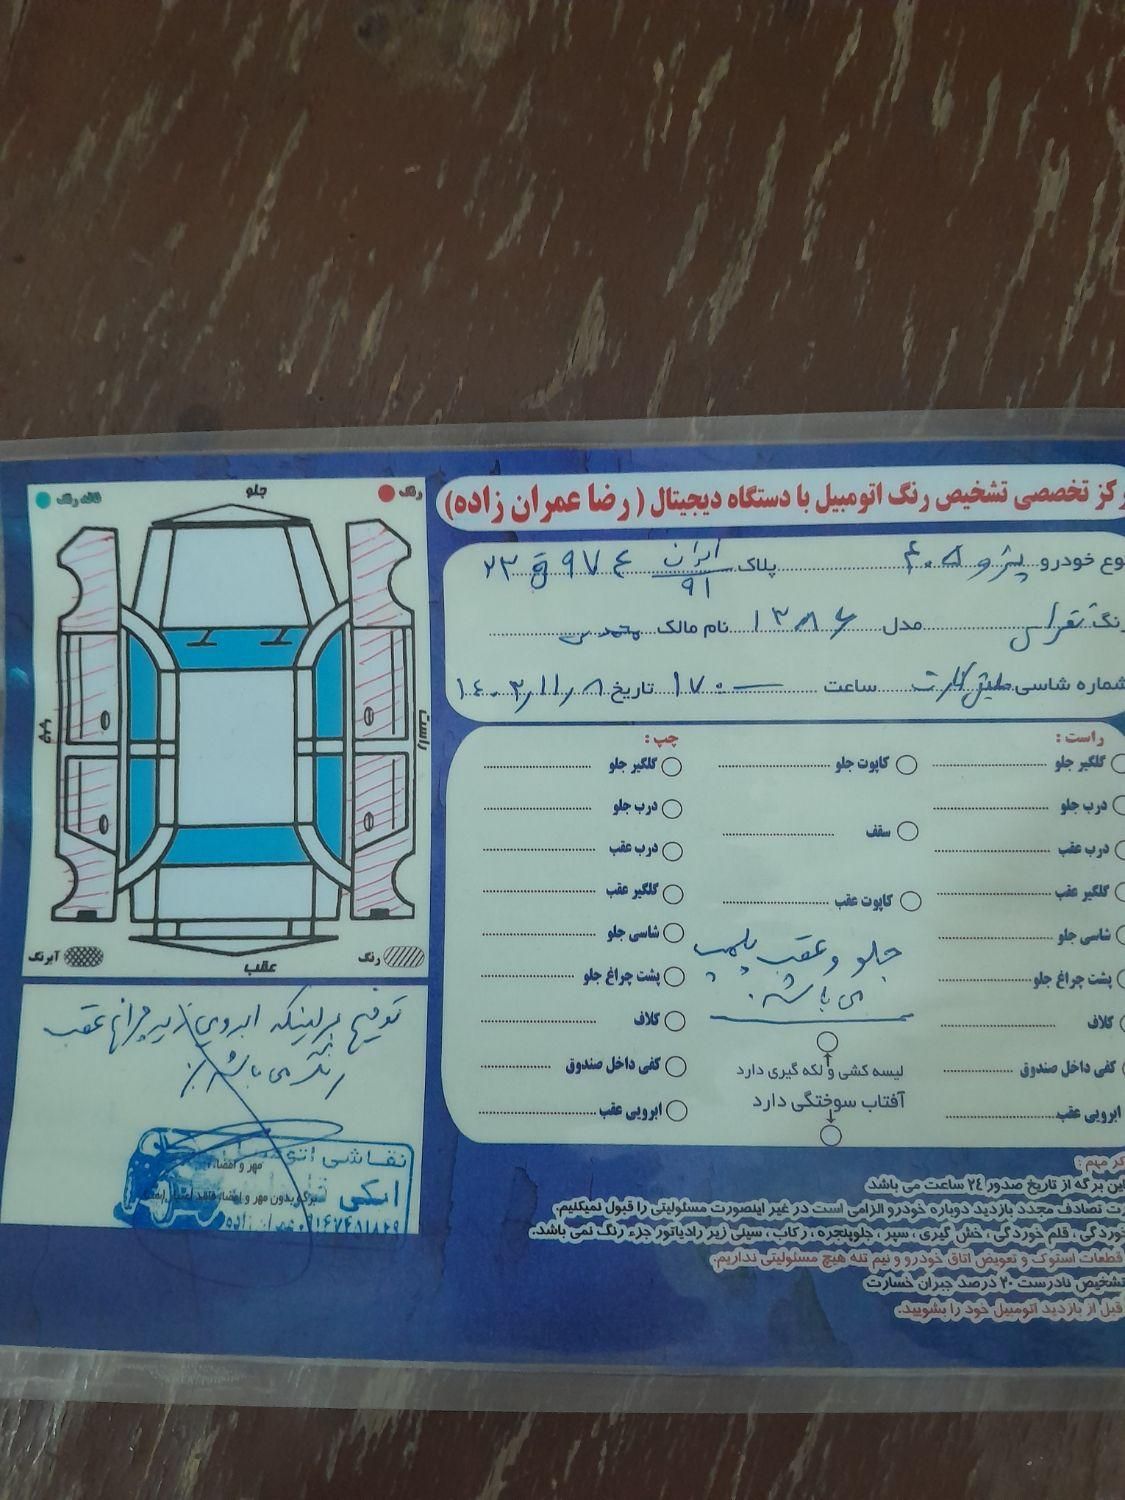 رکز تخصصی تشخیص رنگ اتومبیل با دستگاه دیجیتال ( رضا عمران زاده)
وع خودرو پژو ۴۰۵ پلاک ایران ۹۱ ۹۷۴ ق ۲۳
رنگ نقره‌ای مدل ۱۳۸۶ نام مالک مهندس
شماره شاسی طبق کارت ساعت ۱۷۰۰ تاریخ ۱۴۰۳/۱۱/۸
راست :
گلگیر جلو
درب جلو
درب عقب
گلگیر عقب
شاسی جلو
پشت چراغ جلو
کلاف
کفی داخل صندوق
ابرویی عقب
کاپوت جلو
سقف
کاپوت عقب
جلو و عقب پلمپ
می باشد.
لیسه کشی و لکه گیری دارد
آفتاب سوختگی دارد
چپ :
گلگیر جلو
درب جلو
درب عقب
گلگیر عقب
شاسی جلو
پشت چراغ جلو
کلاف
کفی داخل صندوق
ابرویی عقب
رنگ
جلو
لکه رنگ
راست
چپ
رنگ
عقب
آبرنگ
توضیح براینکه ابرویی زیر چراغ عقب
رنگ می باشد
نقاشی اتومبیل
مهر و امضاء
برگه بدون مهر و امضاء فاقد اعتبار است
عمران زاده
کر مهم :
این برگه از تاریخ صدور ۲۴ ساعت می باشد
رت تصادف مجدد بازدید دوباره خودرو الزامی است در غیر اینصورت مسئولیتی را قبول نمیکنیم.
خوردگی ، قلم خوردگی ، خش گیری ، سپر ، جلوپنجره ، رکاب ، سینی زیر رادیاتور جزء رنگ نمی باشد.
قطعات استوک و تعویض اتاق خودرو و نیم تنه هیچ مسئولیتی نداریم.
تشخیص نادرست ۲۰ درصد جبران خسارت
قبل از بازدید اتومبیل خود را بشویید.